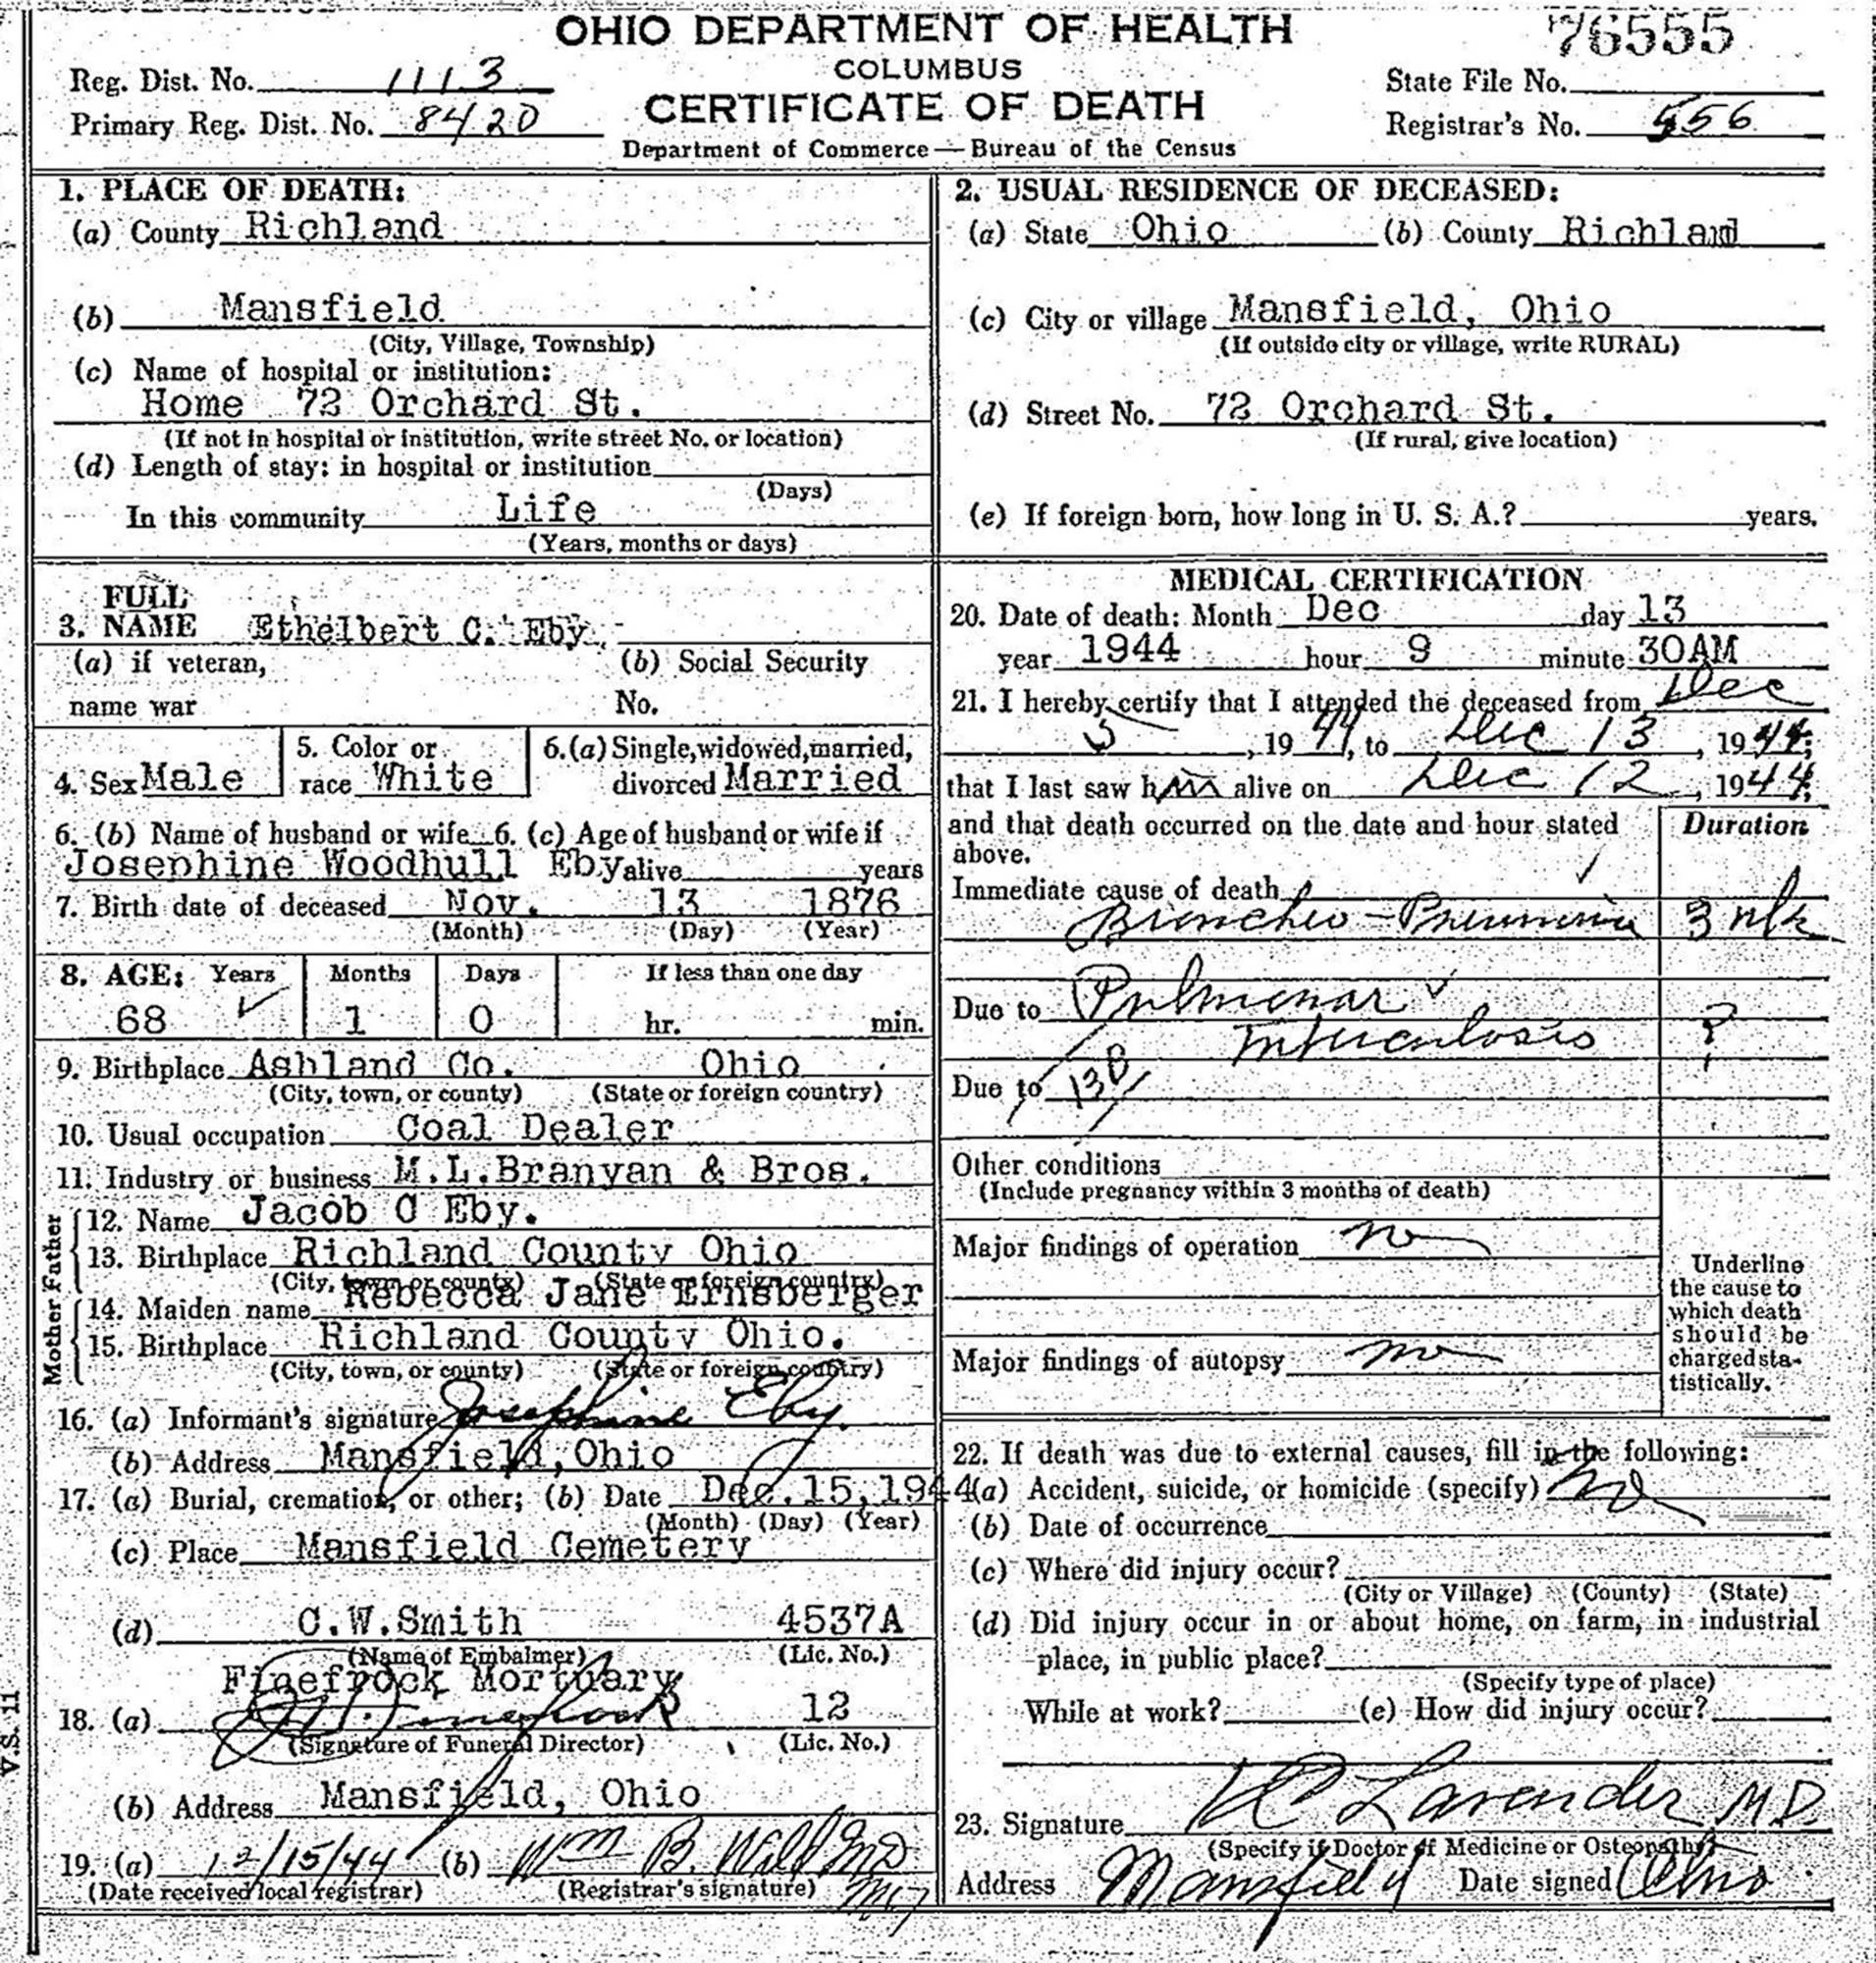 OHIO DEPARTMENT OF HEALTH
76555
COLUMBUS
CERTIFICATE OF DEATH
Department of Commerce — Bureau of the Census
Reg. Dist. No. 1113
Primary Reg. Dist. No. 8420
State File No.
Registrar's No. 556
1. PLACE OF DEATH:
(a) County Richland
(b) Mansfield
(City, Village, Township)
(c) Name of hospital or institution:
Home 72 Orchard St.
(If not in hospital or institution, write street No. or location)
(d) Length of stay: in hospital or institution
(Days)
In this community Life
(Years, months or days)
2. USUAL RESIDENCE OF DECEASED:
(a) State Ohio (b) County Richland
(c) City or village Mansfield, Ohio
(If outside city or village, write RURAL)
(d) Street No. 72 Orchard St.
(If rural, give location)
(e) If foreign born, how long in U. S. A.? years.
FULL
3. NAME Ethelbert C. Eby
(a) if veteran, (b) Social Security
name war No.
4. Sex Male
5. Color or
race White
6.(a) Single, widowed, married,
divorced Married
6. (b) Name of husband or wife 6. (c) Age of husband or wife if
Josephine Woodhull Eby alive years
7. Birth date of deceased Nov. 13 1876
(Month) (Day) (Year)
8. AGE: Years Months Days If less than one day
68 1 0 hr. min.
9. Birthplace Ashland Co. Ohio
(City, town, or county) (State or foreign country)
10. Usual occupation Coal Dealer
11. Industry or business M.L.Branyan & Bros.
Father
12. Name Jacob C Eby.
13. Birthplace Richland County Ohio
(City, town or county) (State or foreign country)
Mother
14. Maiden name Rebecca Jane Ernsberger
15. Birthplace Richland County Ohio.
(City, town, or county) (State or foreign country)
16. (a) Informant's signature Josephine Eby.
(b) Address Mansfield, Ohio
17. (a) Burial, cremation, or other; (b) Date Dec.15,1944
(Month) (Day) (Year)
(c) Place Mansfield Cemetery
(d) C.W.Smith 4537A
(Name of Embalmer) (Lic. No.)
Finefrock Mortuary
18. (a) Finefrock 12
(Signature of Funeral Director) (Lic. No.)
(b) Address Mansfield, Ohio
19. (a) 12/15/44 (b) Wm B.
(Date received local registrar) (Registrar's signature)
V.S. 11
MEDICAL CERTIFICATION
20. Date of death: Month Dec day 13
year 1944 hour 9 minute 30AM
21. I hereby certify that I attended the deceased from Dec
5, 1944, to Dec 13, 1944;
that I last saw him alive on Dec 12, 1944;
and that death occurred on the date and hour stated
above.
Duration
Immediate cause of death
Broncheo-Pneumonia 3
Due to Pulmonar
Tuberculosis ?
Due to 13B
Other conditions
(Include pregnancy within 3 months of death)
Major findings of operation no
Major findings of autopsy no
Underline
the cause to
which death
should be
charged sta-
tistically.
22. If death was due to external causes, fill in the following:
(a) Accident, suicide, or homicide (specify) No
(b) Date of occurrence
(c) Where did injury occur?
(City or Village) (County) (State)
(d) Did injury occur in or about home, on farm, in industrial
place, in public place?
(Specify type of place)
While at work? (e) How did injury occur?
23. Signature Lavender M.D.
(Specify if Doctor of Medicine or Osteopathy)
Address Mansfield Date signed Ohio